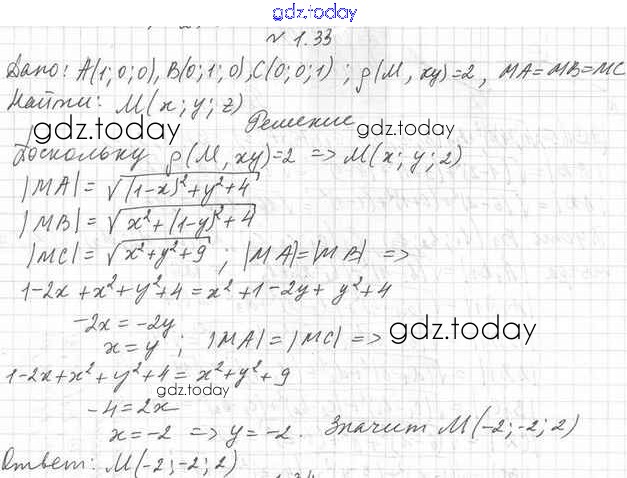 gdz.today
№ 1.33
Дано: A(1; 0; 0), B(0; 1; 0), C(0; 0; 1) ; ρ(M, xy)=2, MA=MB=MC
Найти: M(x; y; z)
Решение
gdz.today gdz.today
Поскольку ρ(M, xy)=2 => M(x; y; 2)
|MA| = √((1-x)²+y²+4)
|MB| = √(x²+(1-y)²+4)
|MC| = √(x²+y²+9) ; |MA|=|MB| =>
1-2x+x²+y²+4=x²+1-2y+y²+4
-2x=-2y
x=y ; |MA|=|MC| => gdz.today
1-2x+x²+y²+4=x²+y²+9
gdz.today
-4=2x
x=-2 => y=-2. Значит M(-2;-2; 2)
Ответ: M(-2;-2; 2)
1.34